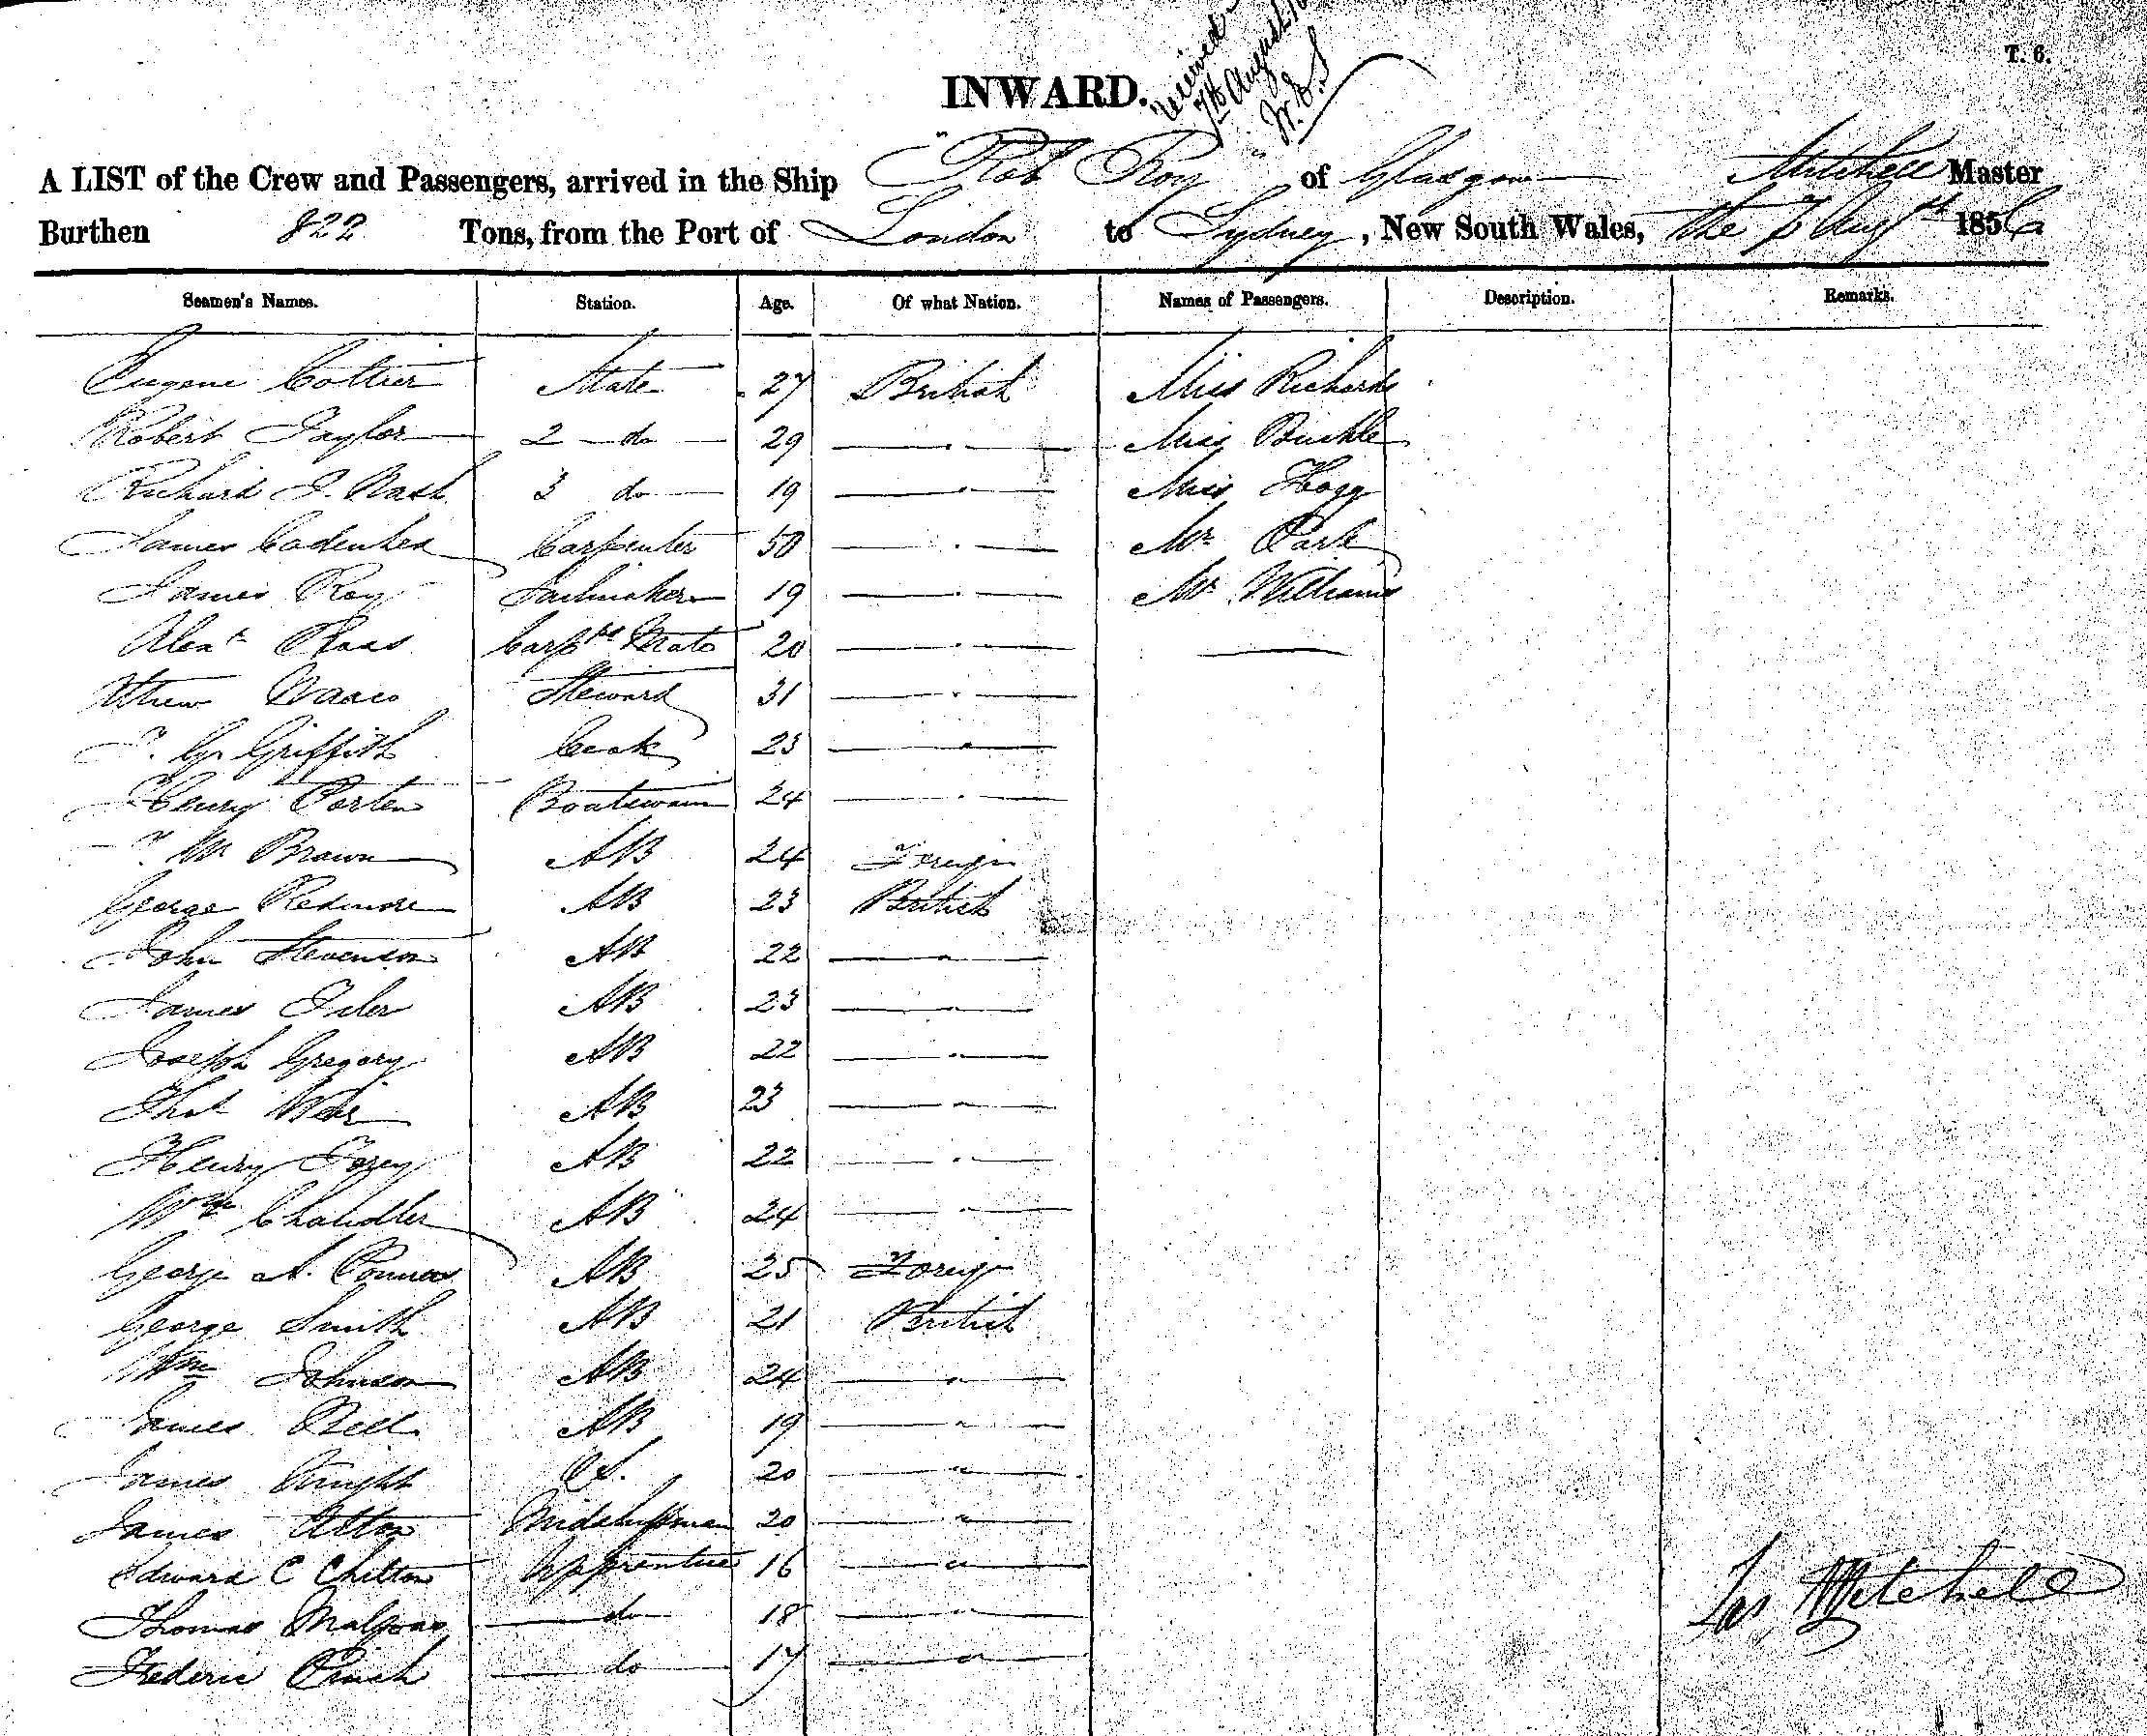 T. 6.
INWARD.
Received
7th August
W. S
A LIST of the Crew and Passengers, arrived in the Ship "Rob Roy" of Glasgow Mitchell Master
Burthen 822 Tons, from the Port of London to Sydney, New South Wales, the 7 Augst 1856
Seamen's Names. Station. Age. Of what Nation. Names of Passengers. Description. Remarks.
Eugene Collier Mate 27 British Miss Richards
Robert Taylor 2 do 29 " Miss Buckle
Richard J. Nash 3 do 19 " Miss Hogg
James Cadenhead Carpenter 50 " Mr Park
James Roy Sailmaker 19 " Mr Williams
Alexr Ross Carptrs Mate 20 "
Steward 31 "
Griffith Cook 23 "
Henry Porter Boatswain 24 "
Wm Brown AB 24 Foreign
George Redmore AB 23 British
John Stevenson AB 22 "
James Isler AB 23 "
Joseph Gregory AB 22 "
Thos Weir AB 23 "
Henry AB 22 "
Wm Chandler AB 24 "
George A. AB 25 Foreign
George Smith AB 21 British
Wm Johnson AB 24 "
James Bell AB 19 "
James Knight OS. 20 "
James Alton Midshipman 20 "
Edward C Chilton Apprentice 16 "
Thomas Malpas do 18 "
Frederic do 17 "
Jas Mitchell